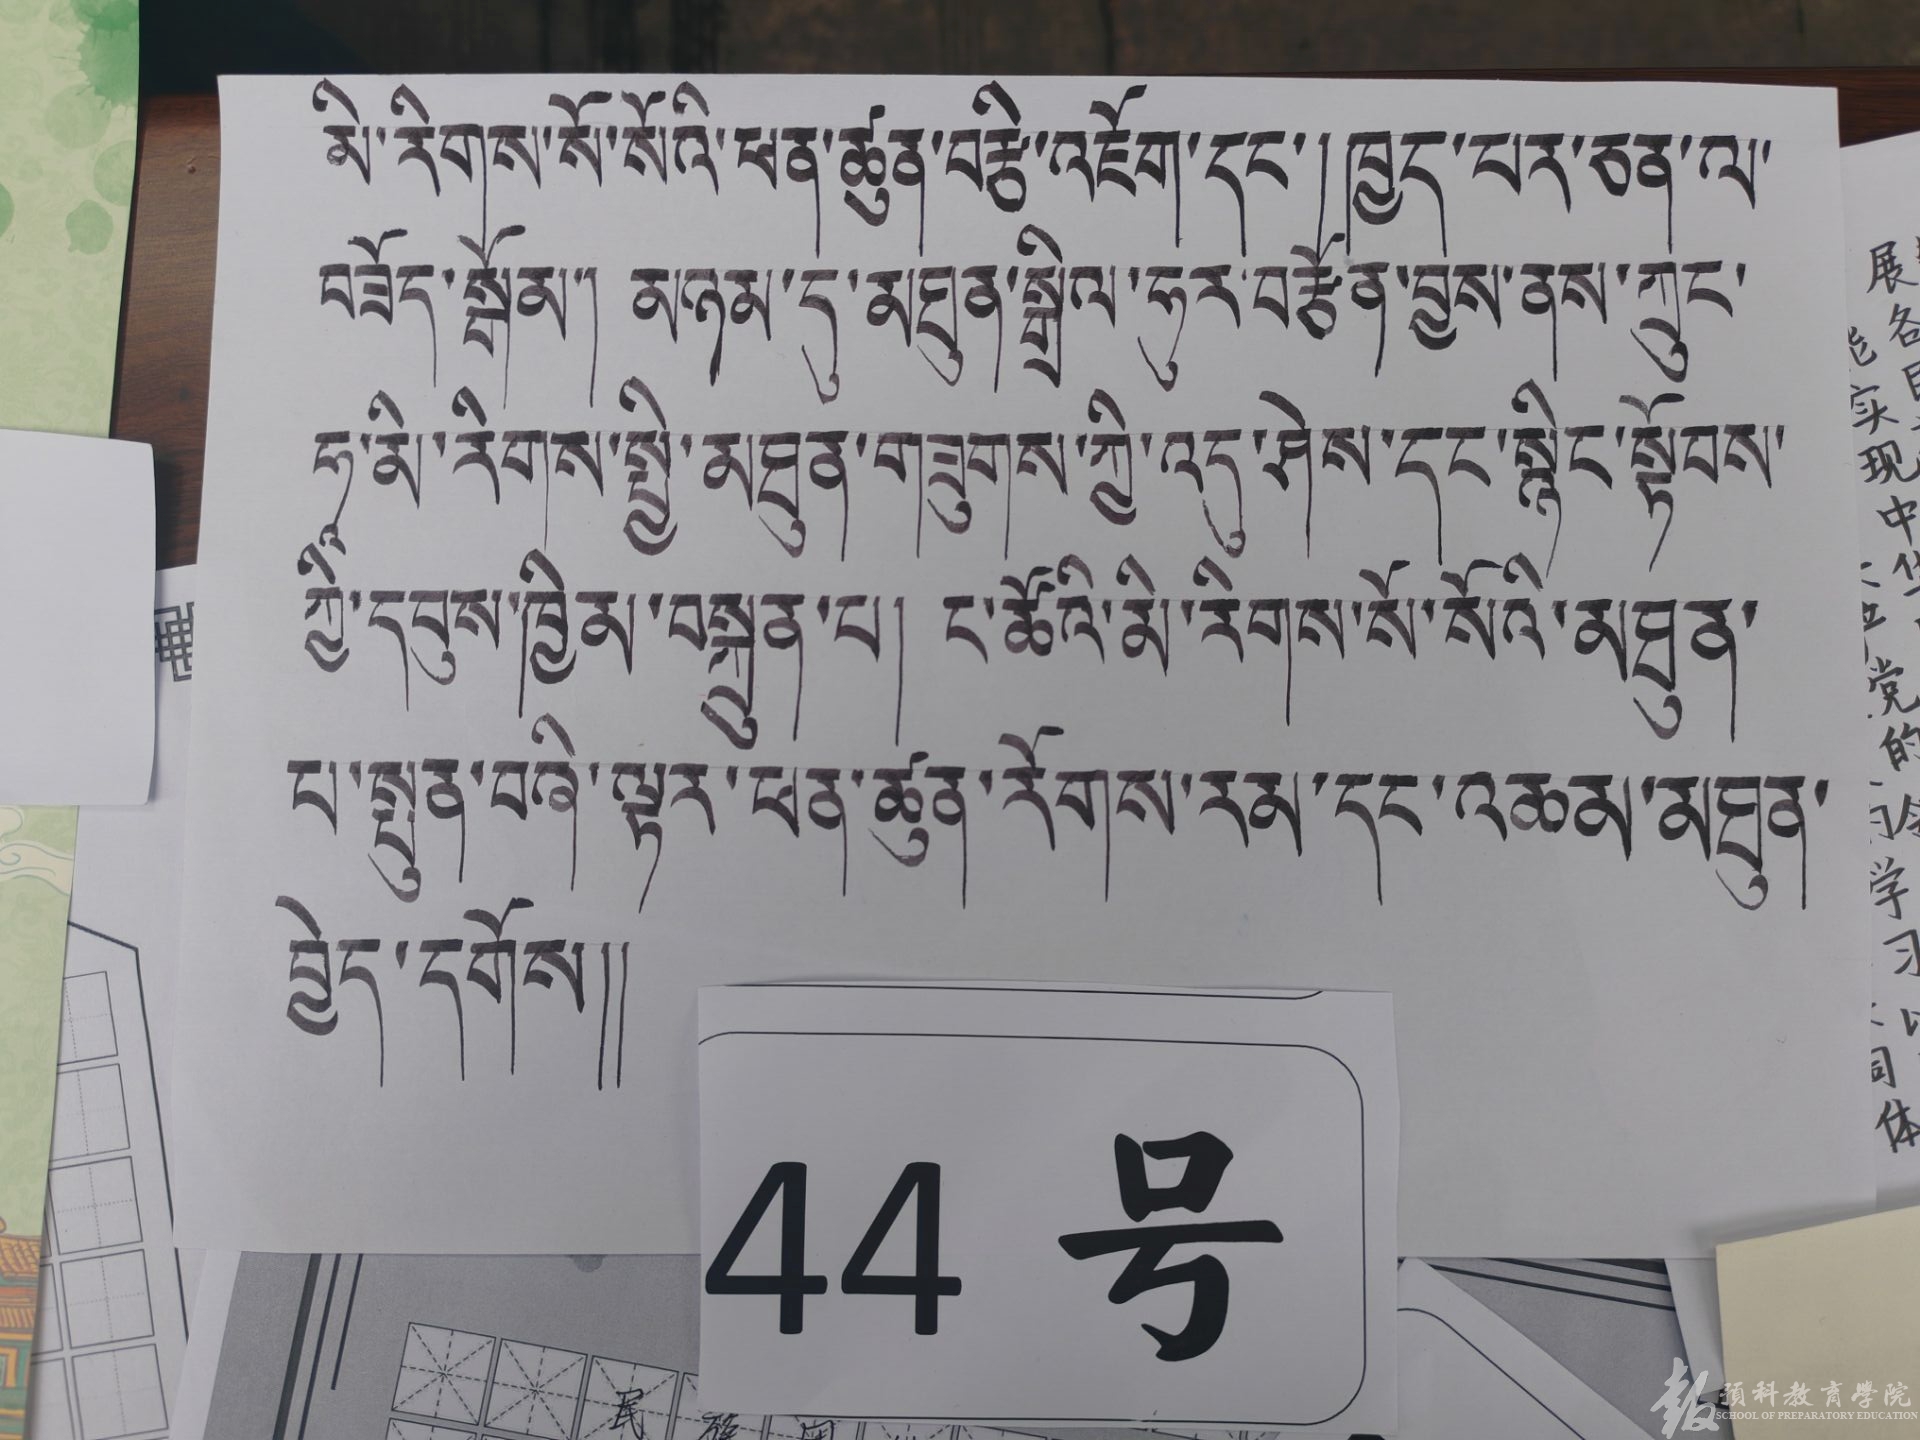 མི་རིགས་སོ་སོའི་ཕན་ཚུན་བརྩི་འཇོག་དང་། ཁྱད་པར་ཅན་ལ་
བཟོད་སྒོམ། མཉམ་དུ་མཐུན་སྒྲིལ་ཧུར་བརྩོན་བྱས་ནས་ཀྲུང་
ཧྭ་མི་རིགས་སྤྱི་མཐུན་གཟུགས་ཀྱི་འདུ་ཤེས་དང་སྙིང་སྟོབས་
ཀྱི་དབུས་ཁྱིམ་བསྐྲུན་པ། ང་ཚོའི་མི་རིགས་སོ་སོའི་མཐུན་
པ་སྤུན་བཞི་ལྟར་ཕན་ཚུན་རོགས་རམ་དང་འཆམ་མཐུན་
བྱེད་དགོས།།
44 号
展各民
能实现中华
党的领
学习以
同体
民族团
報 預科教育學院
SCHOOL OF PREPARATORY EDUCATION